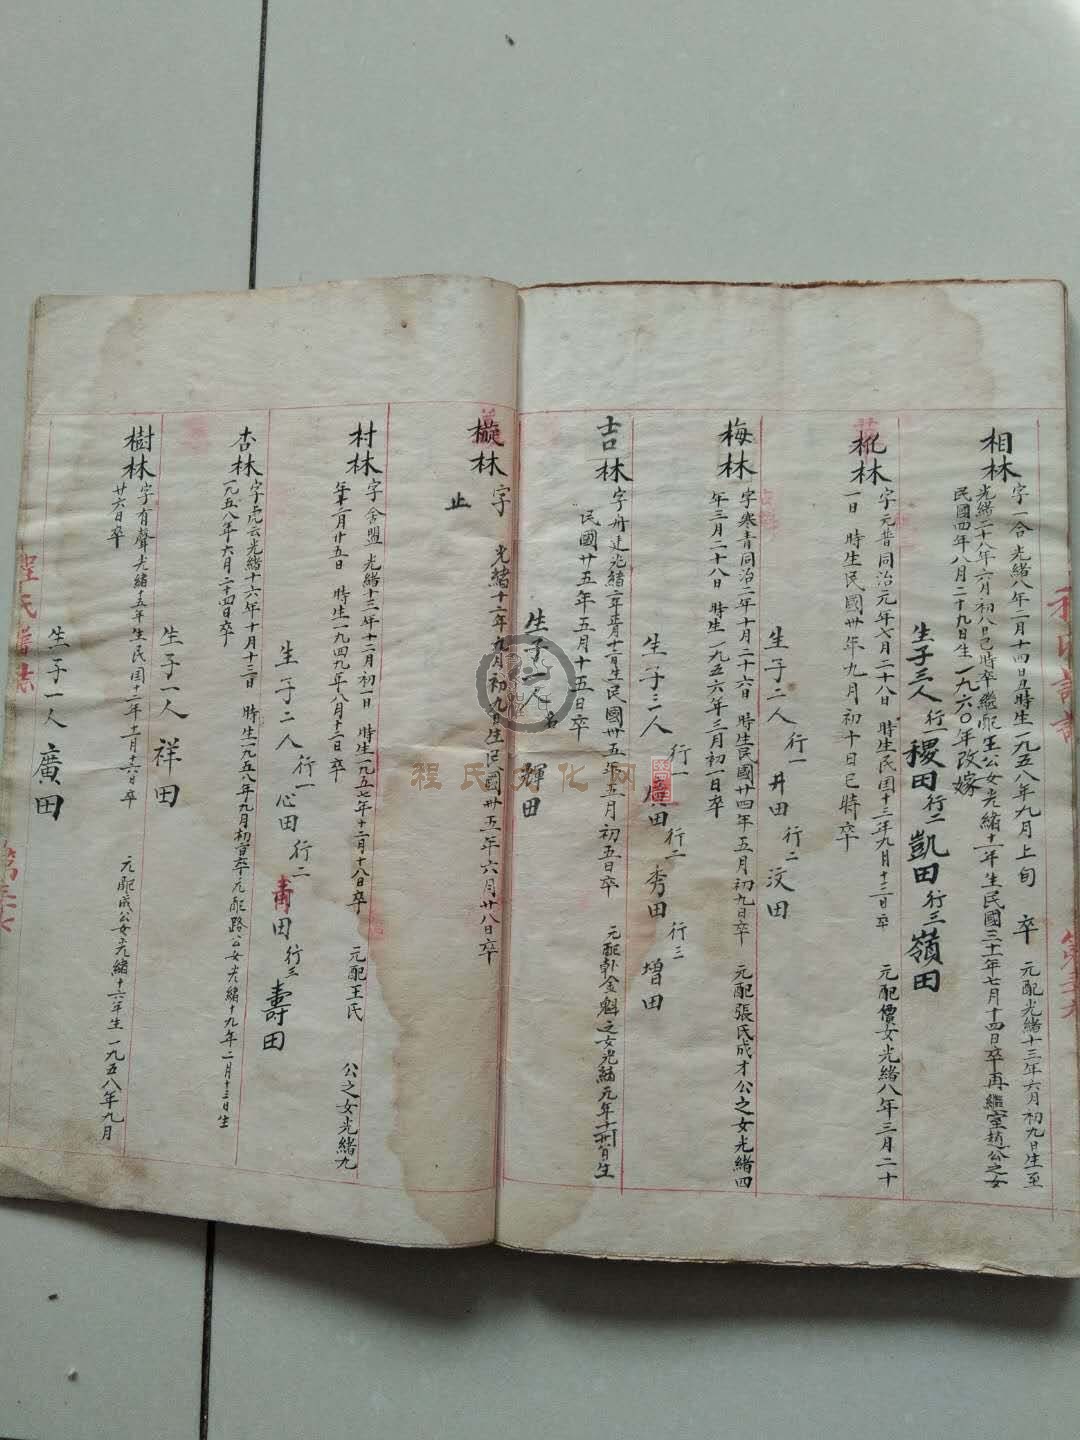 相林
字一合光緒八年二月十四日丑時生一九五八年九月上旬 卒 元配光緒十三年六月初九日生至
光緒二十八年六月初八日巳時卒繼配王公女光緒十一年生民國三十一年七月十四日卒再繼室趙公之女
民國四年八月二十九日生一九六〇年改嫁
生子三人 行一 稷田 行二 凱田 行三 嶺田
枇林
字元普同治元年七月二十八日 時生民国十三年九月十二日卒 元配價女光緒八年三月二十
一日 時生民國卅年九月初十日巳時卒
生子二人 行一 井田 行二 汶田
梅林
字寒青同治二年十月二十六日 時生民國廿四年五月初九日卒 元配張氏成才公之女光緒四
年三月二十八日 時生一九五六年三月初一日卒
生子三人 行一 田 行二 秀田 行三 增田
吉林
民國廿五年五月十五日卒
生子一人名 輝田
林 字 光緒十二年九月初九日生民國卅五年六月廿八日卒
止
村林
字會盟 光緒十三年十二月初一日 時生一九五七年十二月十八日卒 元配王氏 公之女光緒九
時生一九四九年八月十三日卒
生子二人 行一 心田 行二 甫田 行三 壽田
杏林
字虎云光緒十六年十月十三日 時生一九五八年九月初 卒元配路公女光緒十九年二月十三日生
一九五八年六月二十四日卒
生子一人 祥田
樹林
字有聲光緒十五年生民国十二年十一月十六日卒 元配成公女光緒十六年生一九五八年九月
廿六日卒
生子一人 廣田
程氏文化网